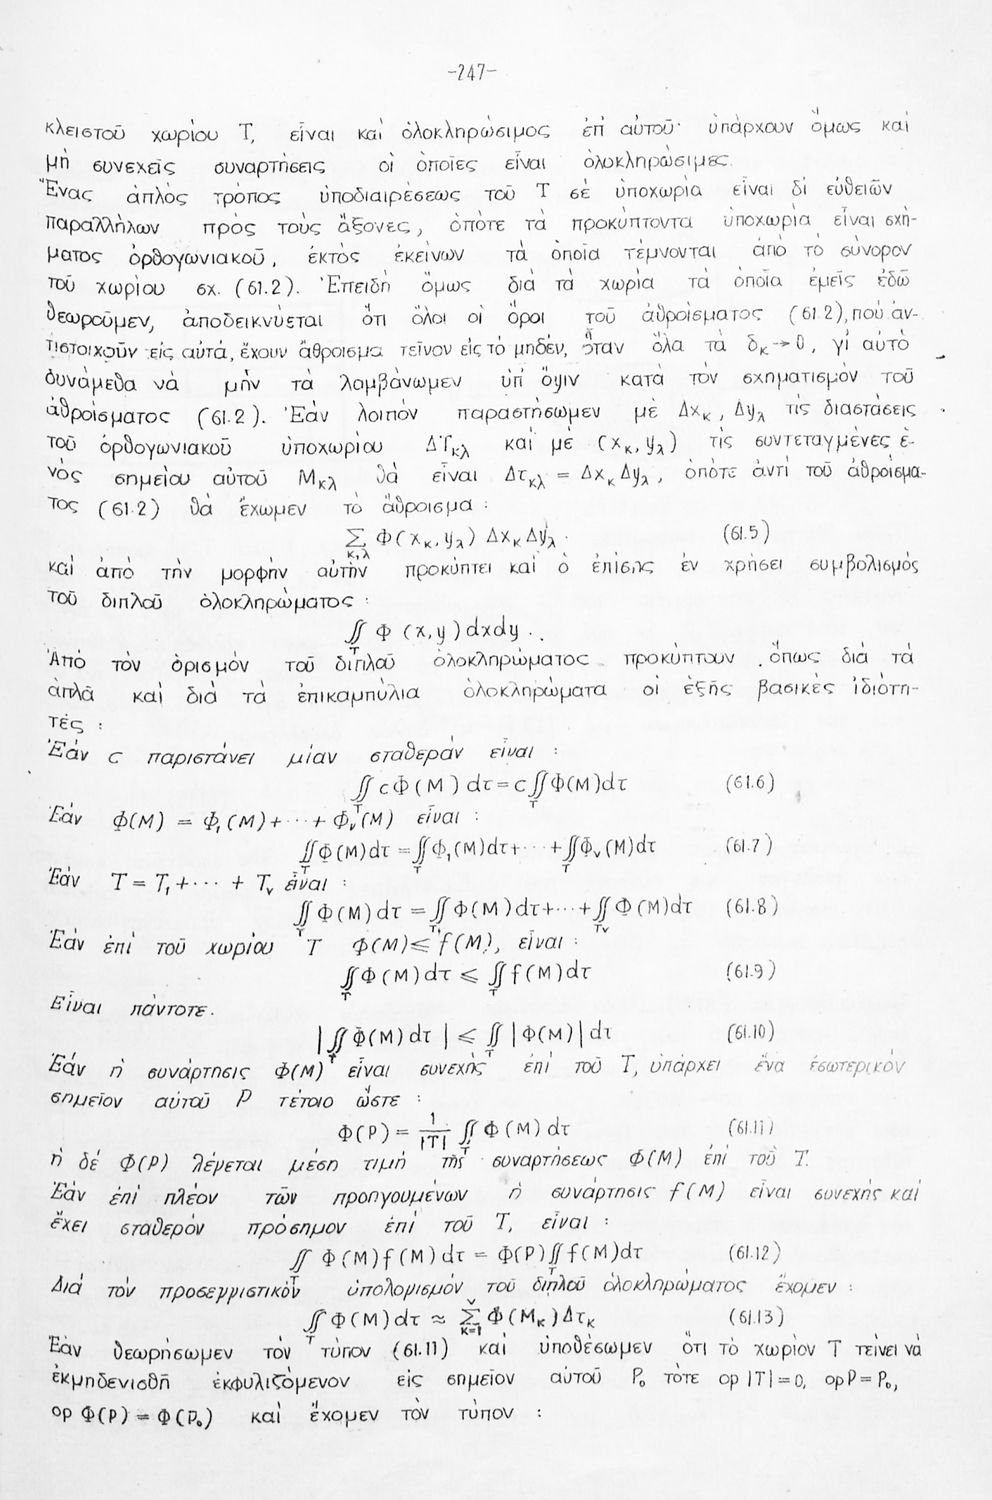 -247-
κλειστοῦ χωρίου Τ, εἶναι καί ὁλοκληρώσιμος ἐπ' αὐτοῦ· ὑπάρχουν ὅμως καί
μή συνεχεῖς συναρτήσεις οἱ ὁποῖες εἶναι ὁλοκληρώσιμες.
Ἕνας ἁπλός τρόπος ὑποδιαιρέσεως τοῦ Τ σέ ὑποχωρία εἶναι δι' εὐθειῶν
παραλλήλων πρός τούς ἄξονες, ὁπότε τά προκύπτοντα ὑποχωρία εἶναι σχή-
ματος ὀρθογωνιακοῦ, ἐκτός ἐκείνων τά ὁποῖα τέμνονται ἀπό τό σύνορον
τοῦ χωρίου σχ. (61.2). Ἐπειδή ὅμως διά τά χωρία τά ὁποῖα ἐμεῖς ἐδῶ
θεωροῦμεν, ἀποδεικνύεται ὅτι ὅλοι οἱ ὅροι τοῦ ἀθροίσματος (61.2), πού ἀν-
τιστοιχοῦν εἰς αὐτά, ἔχουν ἄθροισμα τεῖνον εἰς τό μηδέν, ὅταν ὅλα τά δ_κ→0, γι' αὐτό
δυνάμεθα νά μήν τά λαμβάνωμεν ὑπ' ὄψιν κατά τόν σχηματισμόν τοῦ
ἀθροίσματος (61.2). Ἐάν λοιπόν παραστήσωμεν μέ Δx_κ, Δy_λ τίς διαστάσεις
τοῦ ὀρθογωνιακοῦ ὑποχωρίου ΔΤ_κλ καί μέ (x_κ, y_λ) τίς συντεταγμένες ἑ-
νός σημείου αὐτοῦ Μ_κλ θά εἶναι Δτ_κλ = Δx_κ Δy_λ, ὁπότε ἀντί τοῦ ἀθροίσμα-
τος (61.2) θά ἔχωμεν τό ἄθροισμα :
Σ_{κ,λ} Φ(x_κ, y_λ) Δx_κ Δy_λ. (61.5)
καί ἀπό τήν μορφήν αὐτήν προκύπτει καί ὁ ἐπίσης ἐν χρήσει συμβολισμός
τοῦ διπλοῦ ὁλοκληρώματος :
∬_Τ Φ (x,y) dxdy.
Ἀπό τόν ὁρισμόν τοῦ διπλοῦ ὁλοκληρώματος προκύπτουν ὅπως διά τά
ἁπλᾶ καί διά τά ἐπικαμπύλια ὁλοκληρώματα οἱ ἑξῆς βασικές ἰδιότη-
τές :
Ἐάν c παριστάνει μίαν σταθεράν εἶναι :
∬_Τ cΦ(Μ) dτ = c∬_Τ Φ(Μ)dτ (61.6)
Ἐάν Φ(Μ) = Φ_1(Μ)+···+Φ_ν(Μ) εἶναι :
∬_Τ Φ(Μ)dτ = ∬_Τ Φ_1(Μ)dτ+···+∬_Τ Φ_ν(Μ)dτ (61.7)
Ἐάν Τ = Τ_1+···+Τ_ν εἶναι :
∬_Τ Φ(Μ)dτ = ∬_{Τ_1} Φ(Μ)dτ+···+∬_{Τ_ν} Φ(Μ)dτ (61.8)
Ἐάν ἐπί τοῦ χωρίου Τ Φ(Μ) ≤ f(Μ), εἶναι :
∬_Τ Φ(Μ)dτ ≤ ∬_Τ f(Μ)dτ (61.9)
Εἶναι πάντοτε.
|∬_Τ Φ(Μ)dτ| ≤ ∬_Τ |Φ(Μ)|dτ (61.10)
Ἐάν ἡ συνάρτησις Φ(Μ) εἶναι συνεχής ἐπί τοῦ Τ, ὑπάρχει ἕνα ἐσωτερικόν
σημεῖον αὐτοῦ Ρ τέτοιο ὥστε :
Φ(Ρ) = 1/|Τ| ∬_Τ Φ(Μ)dτ (61.11)
ἡ δέ Φ(Ρ) λέγεται μέση τιμή τῆς συναρτήσεως Φ(Μ) ἐπί τοῦ Τ.
Ἐάν ἐπί πλέον τῶν προηγουμένων ἡ συνάρτησις f(Μ) εἶναι συνεχής καί
ἔχει σταθερόν πρόσημον ἐπί τοῦ Τ, εἶναι :
∬_Τ Φ(Μ)f(Μ)dτ = Φ(Ρ)∬_Τ f(Μ)dτ (61.12)
Διά τόν προσεγγιστικόν ὑπολογισμόν τοῦ διπλοῦ ὁλοκληρώματος ἔχομεν :
∬_Τ Φ(Μ)dτ ≈ Σ_{κ=1}^ν Φ(Μ_κ)Δτ_κ (61.13)
Ἐάν θεωρήσωμεν τόν τύπον (61.11) καί ὑποθέσωμεν ὅτι τό χωρίον Τ τείνει νά
ἐκμηδενισθῆ ἐκφυλιζόμενον εἰς σημεῖον αὐτοῦ Ρ_0 τότε ορ|Τ|=0, ορΡ=Ρ_0,
ορΦ(Ρ)=Φ(Ρ_0) καί ἔχομεν τόν τύπον :